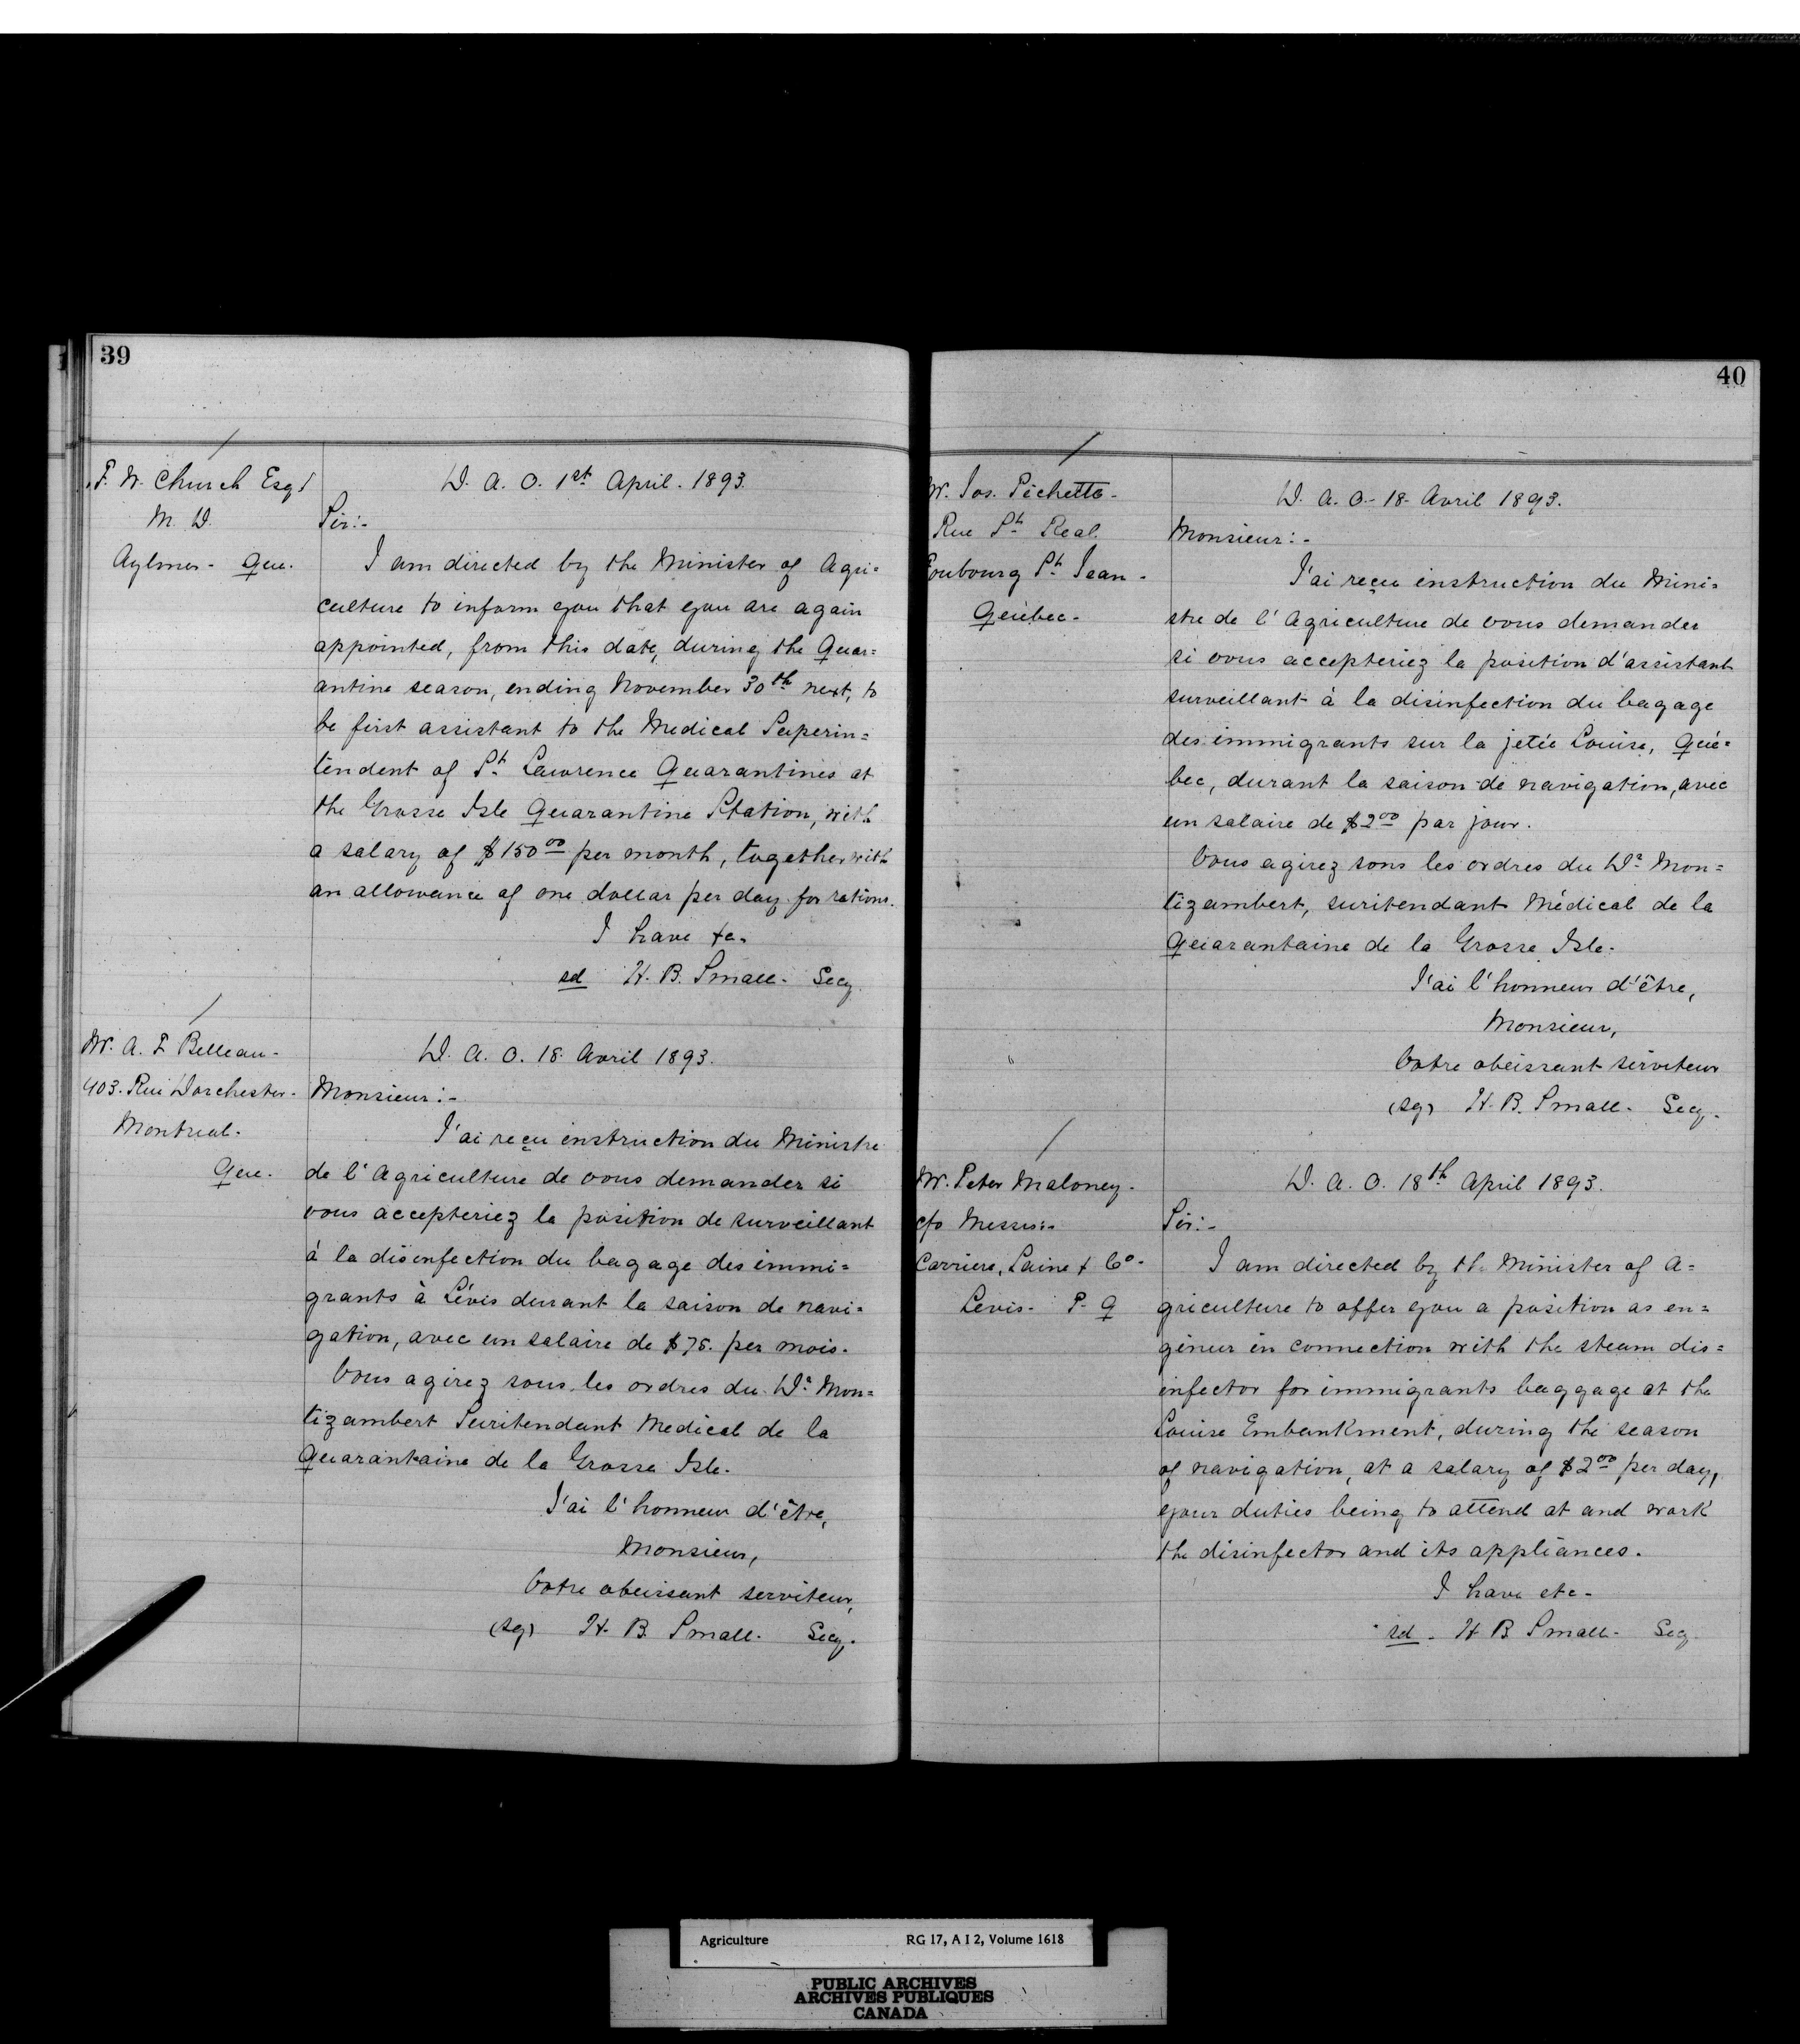 39
F. W. Church Esqr
M. D.
Aylmer - Que.
D. A. O. 1st April. 1893.
Sir:-
I am directed by the Minister of Agri=
culture to inform you that you are again
appointed, from this date, during the Quar=
antine season, ending November 30th next, to
be first assistant to the Medical Superin=
tendent of St. Lawrence Quarantines at
the Grosse Isle Quarantine Station, with
a salary of $150.00 per month, together with
an allowance of one dollar per day for rations.
I have &c.
sd H. B. Small. Secy.
Mr. A. F Belleau.
403. Rue Dorchester.
Montreal.
Que.
D. A. O. 18. Avril 1893.
Monsieur:-
J'ai reçu instruction du Ministre
de l'Agriculture de vous demander si
vous accepteriez la position de surveillant
à la disinfection du bagage des immi=
grants à Lévis durant la saison de navi=
gation, avec un salaire de $75. per mois.
Vous agirez sous les ordres du Dr. Mon=
tizambert Suritendant Medical de la
Quarantaine de la Grosse Isle.
J'ai l'honneur d'être,
Monsieur,
Votre obeissant serviteur,
(sg) H. B. Small. Secy.
40
Mr. Jos. Pichette.
Rue St. Real.
Foubourg St. Jean.
Québec.
D. A. O. - 18. Avril 1893.
Monsieur:-
J'ai reçu instruction du Mini=
stre de l'Agriculture de vous demander
si vous accepteriez la position d'assistant
surveillant à la disinfection du bagage
des immigrants sur la jetée Louise, Qué=
bec, durant la saison de navigation, avec
un salaire de $2.00 par jour.
Vous agirez sous les ordres du Dr. Mon=
tizambert, suritendant Médical de la
Quarantaine de la Grosse Isle.
J'ai l'honneur d'être,
Monsieur,
Votre obéissant serviteur
(sg) H. B. Small. Secy.
Mr. Peter Maloney.
c/o Messrs:-
Carriere, Laine & Co.
Levis. P. Q
D. A. O. 18th April 1893.
Sir:-
I am directed by the Minister of A=
griculture to offer you a position as en=
gineur in connection with the steam dis=
infector for immigrants baggage at the
Louise Embankment, during the season
of navigation, at a salary of $2.00 per day,
your duties being to attend at and work
the disinfector and its appliances.
I have etc.
sd. H B. Small. Secy.
Agriculture RG 17, A I 2, Volume 1618
PUBLIC ARCHIVES
ARCHIVES PUBLIQUES
CANADA